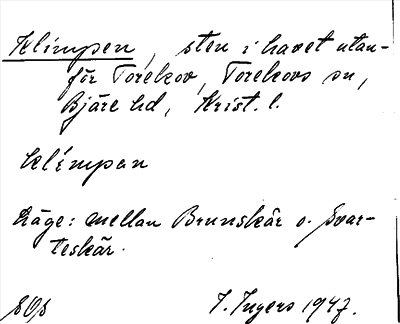 Klímpen, sten i havet utan-
för Torekov, Torekovs sn,
Bjäre hd, Krist. l.
klímpan
Läge: mellan Brunskär o. Svar-
teskär.
I. Ingers 1947.